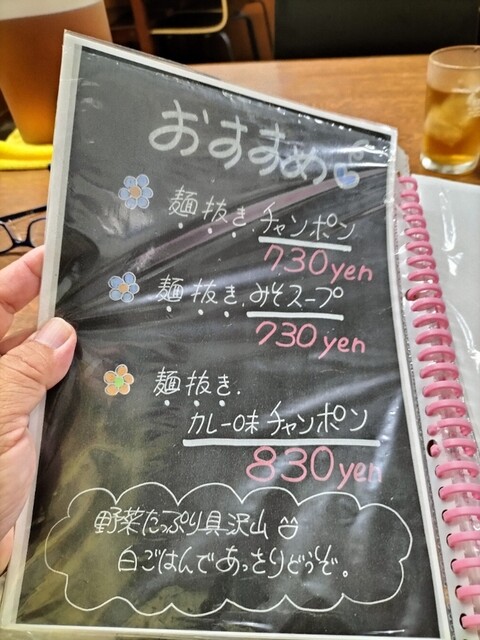 おすすめ
麺抜き.チャンポン
730yen
麺抜き.みそスープ
730yen
麺抜き.
カレー味チャンポン
830yen
野菜たっぷり具沢山
白ごはんであっさりどうぞ。